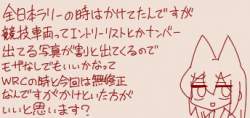 全日本ラリーの時はかけてたんですが
競技車両ってエントリーリストとかナンバー
出てる写真が割と出てくるので
モザなしでもいいかなって
WRCの時と今回は無修正
なんですがかけといた方が
いいと思います?